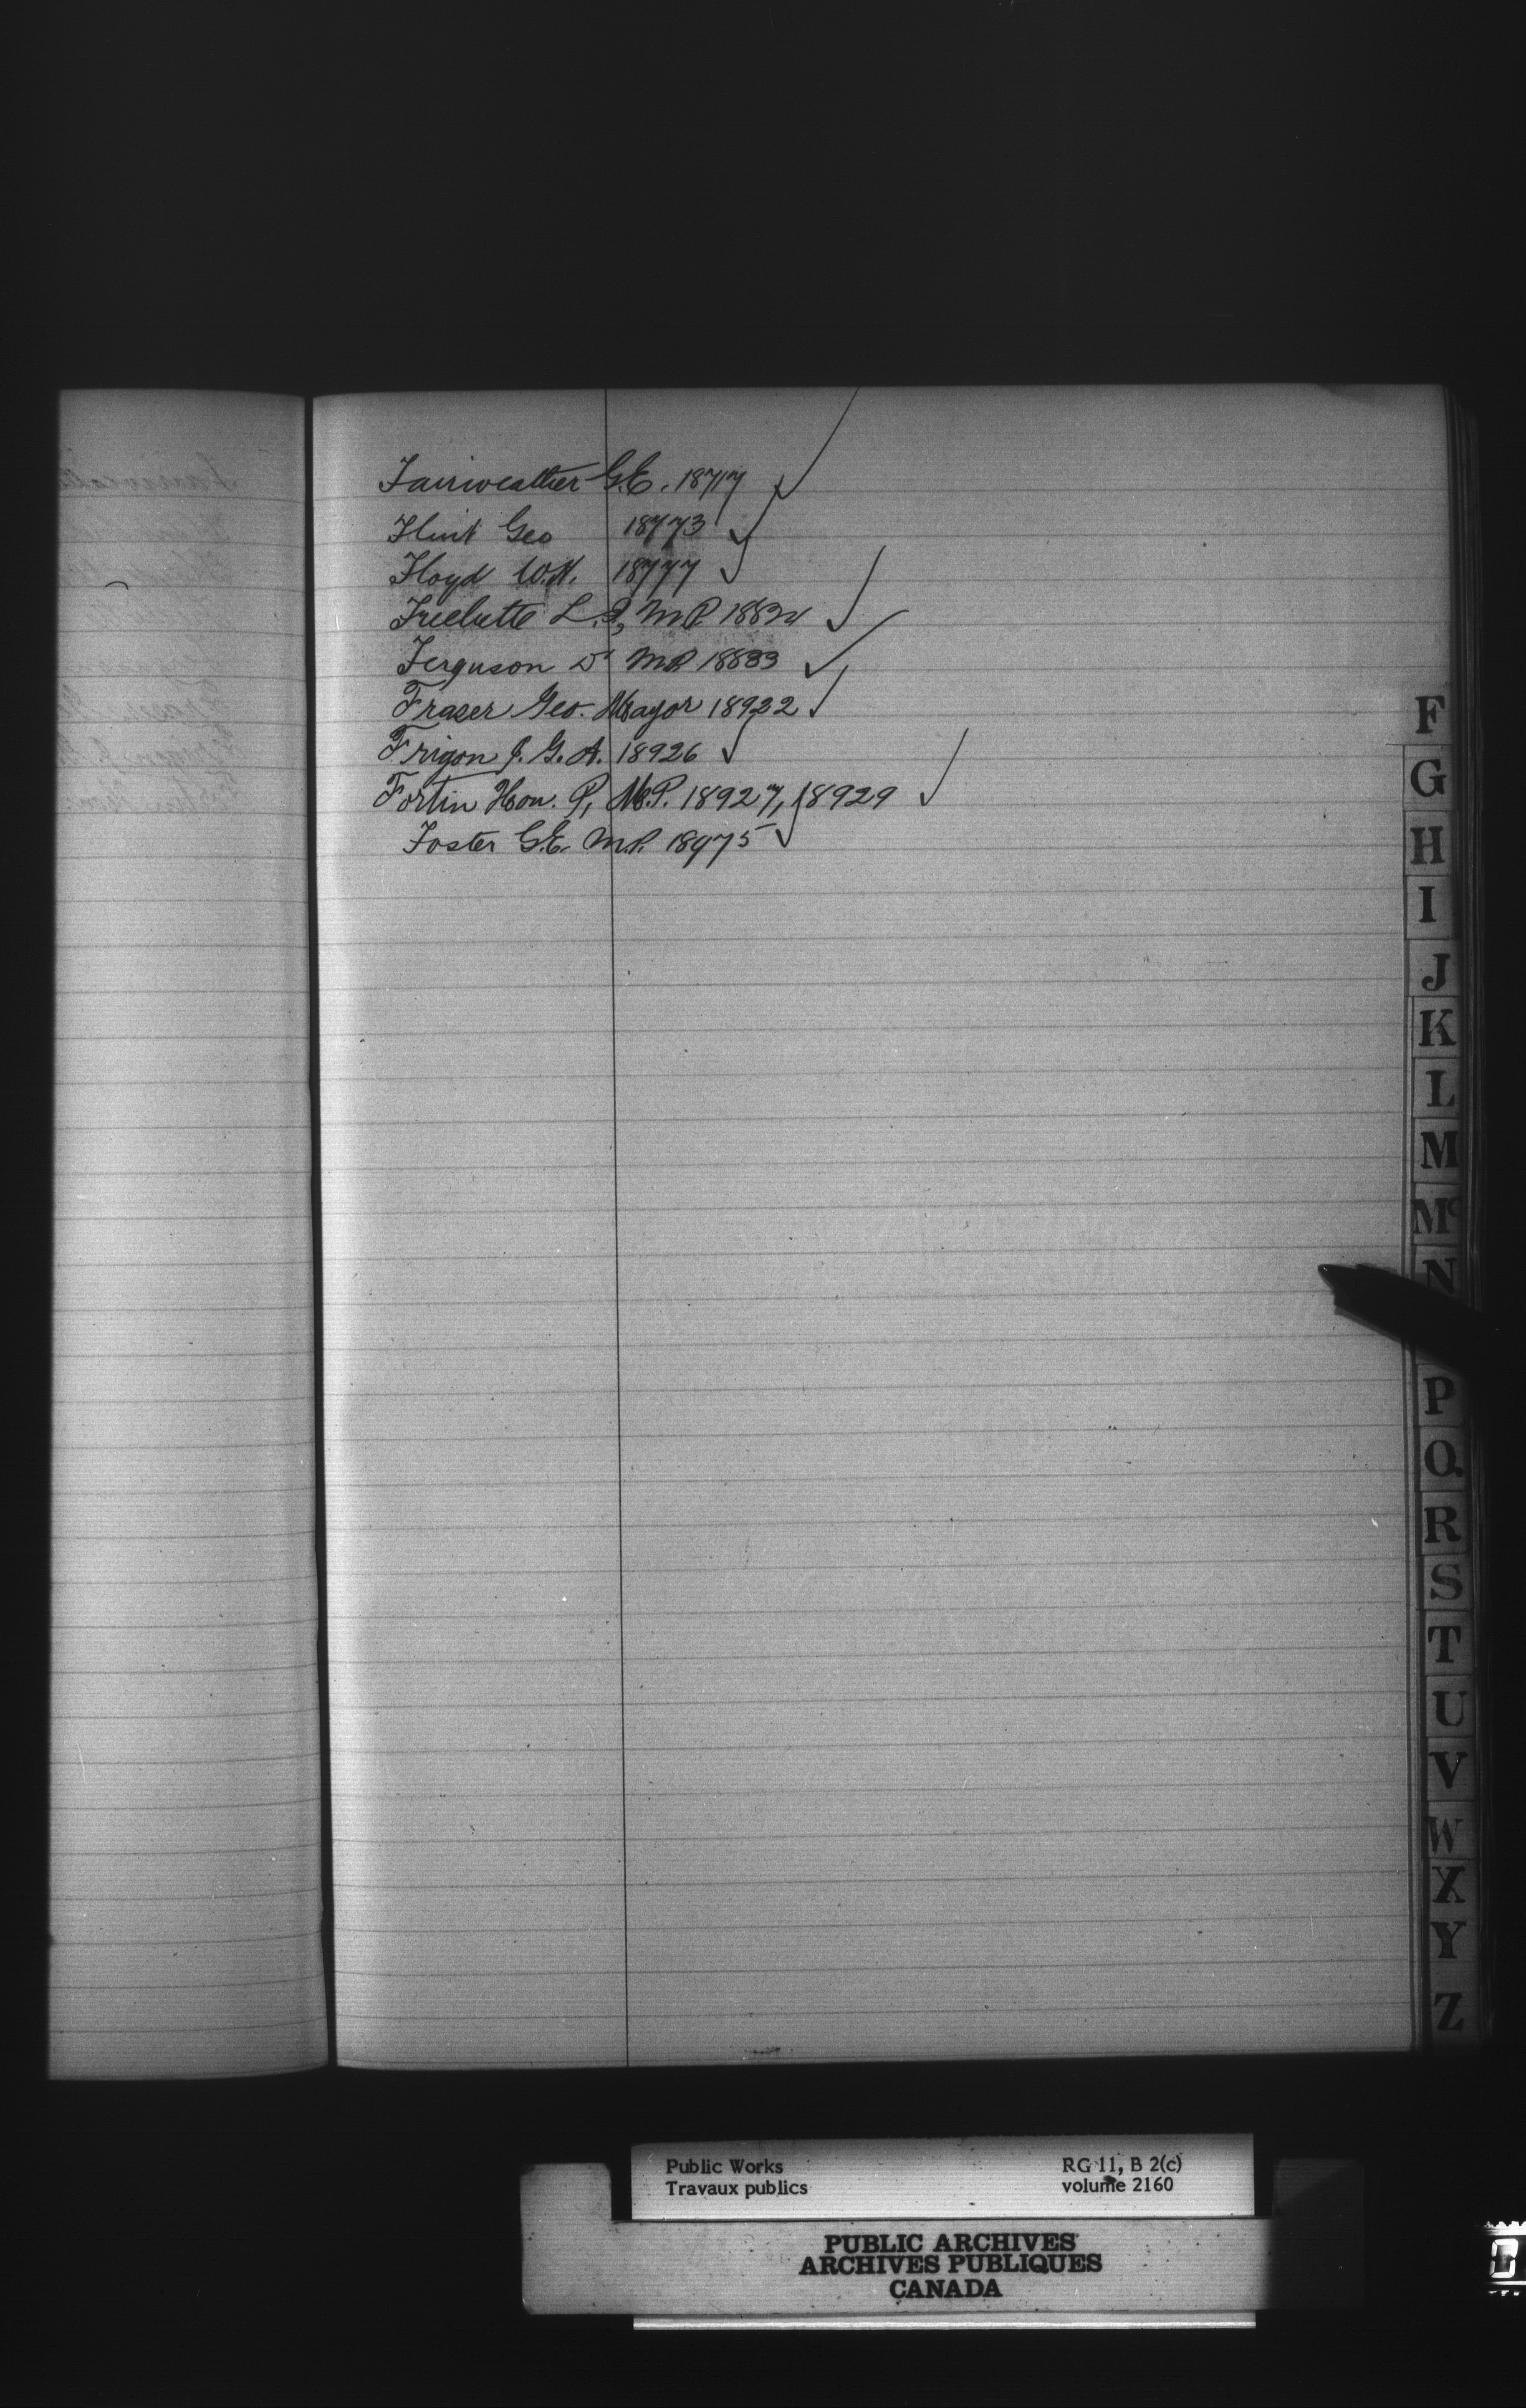 Fairweather G.E. 18717
Flint Geo 18773
Floyd W.H. 18777
Frechette L. MP.
Ferguson Dr MP. 18833
Fraser Geo. Mayor 18922
Frigon J. G. A. 18926
Fortin Hon. P, M.P. 18927, 18929
Foster G.E. M.P. 18975
F
G
H
I
J
K
L
M
Mc
N
P
Q
R
S
T
U
V
W
X
Y
Z
Public Works
Travaux publics
RG 11, B 2(c)
volume 2160
PUBLIC ARCHIVES
ARCHIVES PUBLIQUES
CANADA